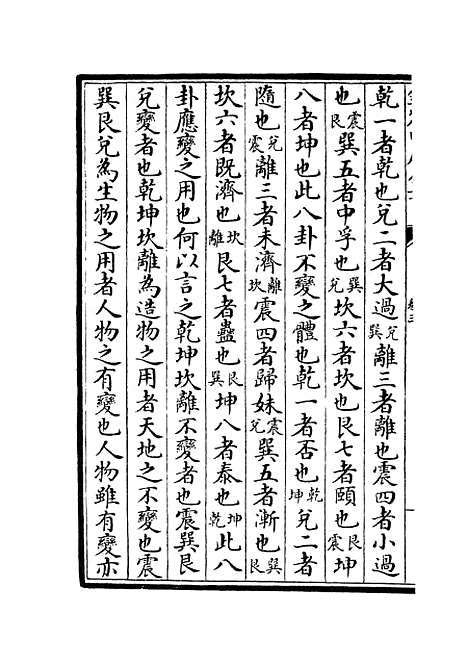 乾一者乾也兌二者大過兌巽離三者離也震四者小過
也震艮巽五者中孚也巽兌坎六者坎也艮七者頤也艮震坤
八者坤也此八卦不變之體也乾一者否也乾坤兌二者
隨也兌震離三者未濟離坎震四者歸妹震兌巽五者漸也巽艮
坎六者既濟也坎離艮七者蠱也艮巽坤八者泰也坤乾此八
卦應變之用也何以言之乾坤坎離不變者也震巽艮
兌變者也乾坤坎離為造物之用者天地之不變也震
巽艮兌為生物之用者人物之有變也人物雖有變亦